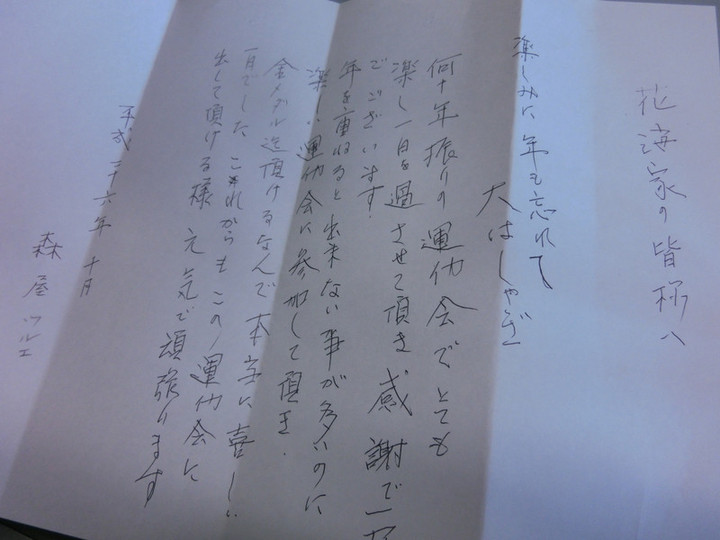 花海家の皆様へ
楽しみに年も忘れて
大はしゃぎ
何十年振りの運動会でとても
楽し一日を過させて頂き感謝で一杯
でございます!
年を重ねると出来ない事が多いのに
楽しい運動会に参加して頂き、
金メダル迄頂けるなんで本当に喜しい
一日でした これからもこの運動会に
出して頂ける様 元気で頑張ります
平成二十六年 十月
森屋ツルエ